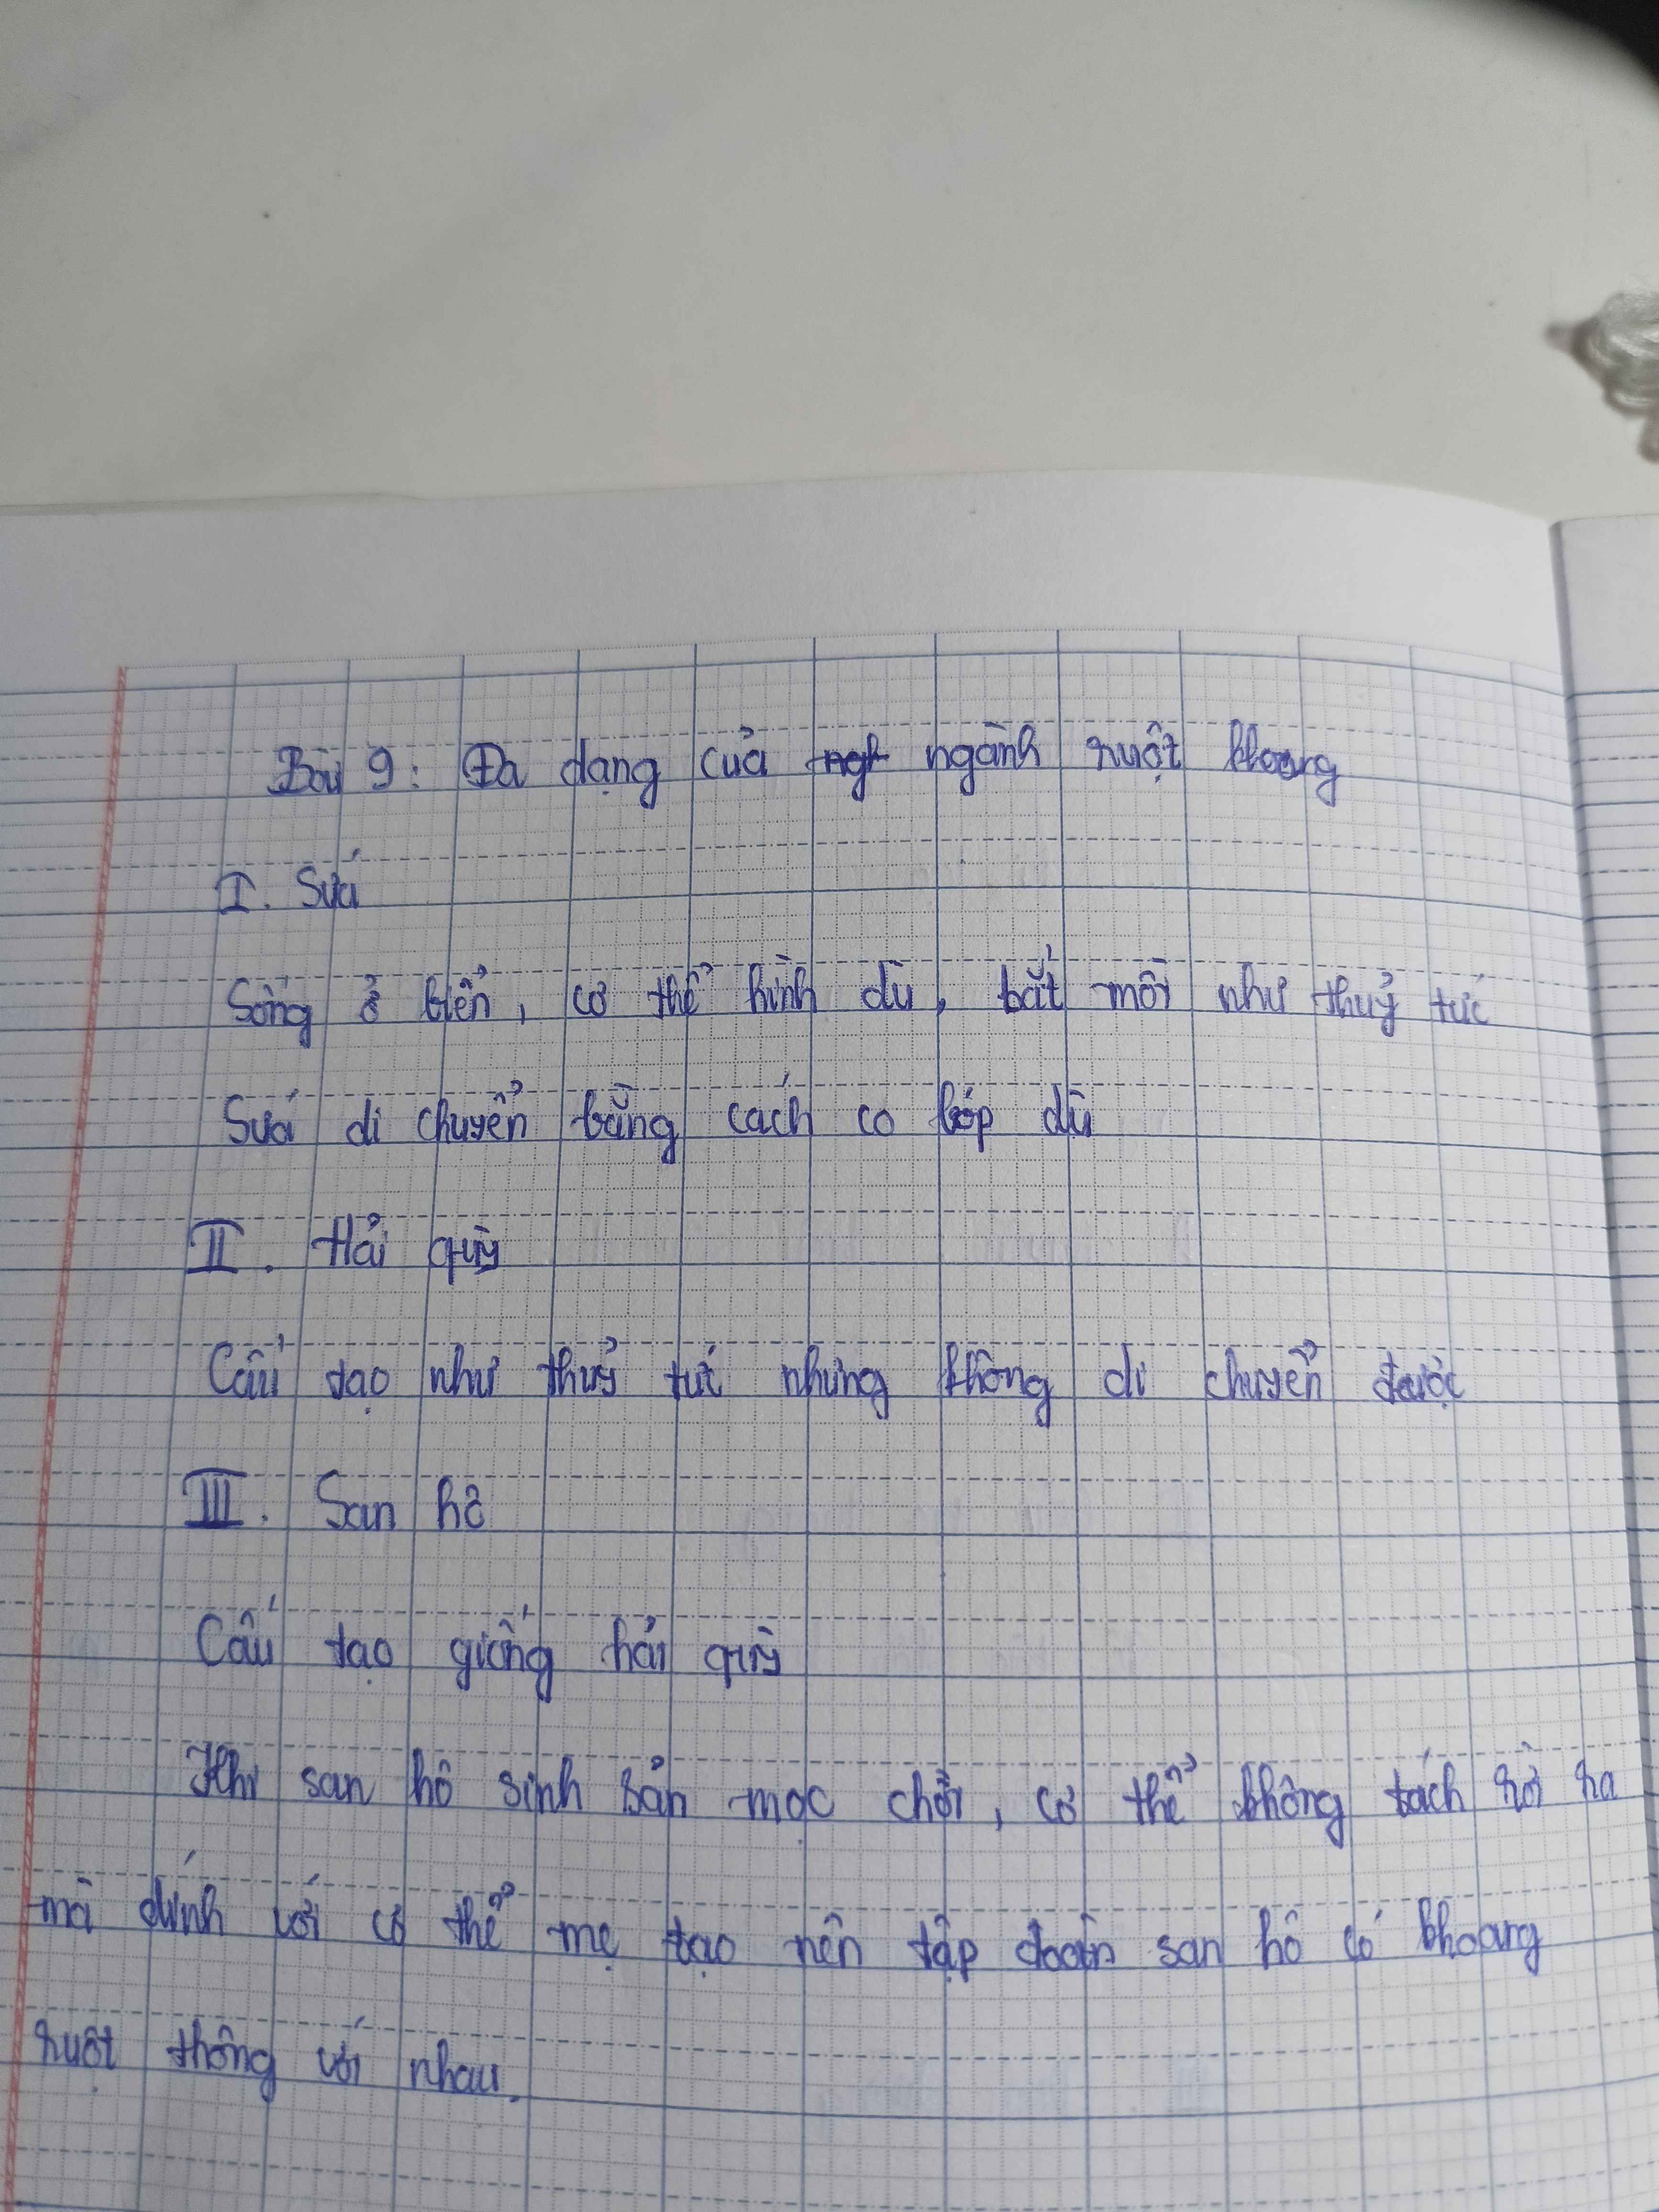 Bài 9: Đa dạng của ngành ruột khoang
I. Sứa
Sống ở biển, cơ thể hình dù, bắt mồi như thuỷ tức
Sứa di chuyển bằng cách co bóp dù
II. Hải quỳ
Cấu tạo như thuỷ tức nhưng không di chuyển được
III. San hô
Cấu tạo giống hải quỳ
Khi san hô sinh sản mọc chồi, cơ thể không tách rời ra
mà dính với cơ thể mẹ tạo nên tập đoàn san hô có khoang
ruột thông với nhau.